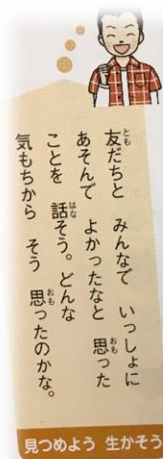 友だちと みんなで いっしょに
あそんで よかったなと 思った
ことを 話そう。どんな
気もちから そう 思ったのかな。
見つめよう 生かそう